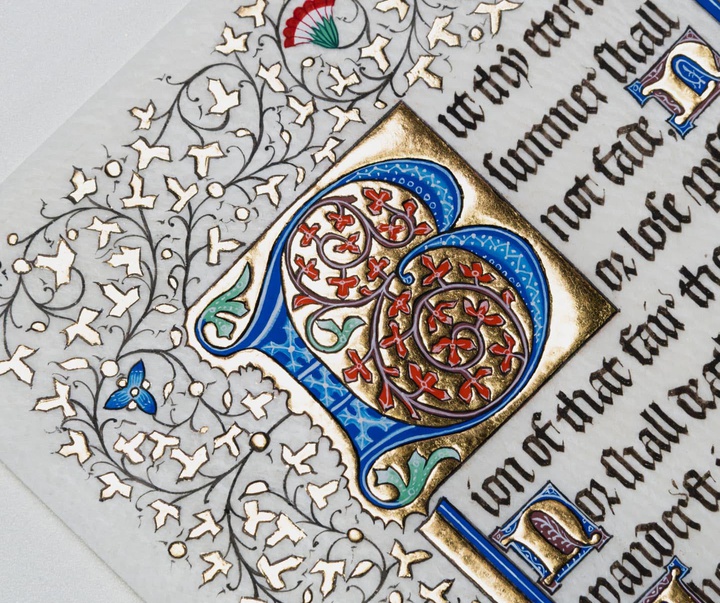 But thy etern
summer shall
not fade, N
or lose pos
ion of that fair tho
Nor shall deat
wander'st i